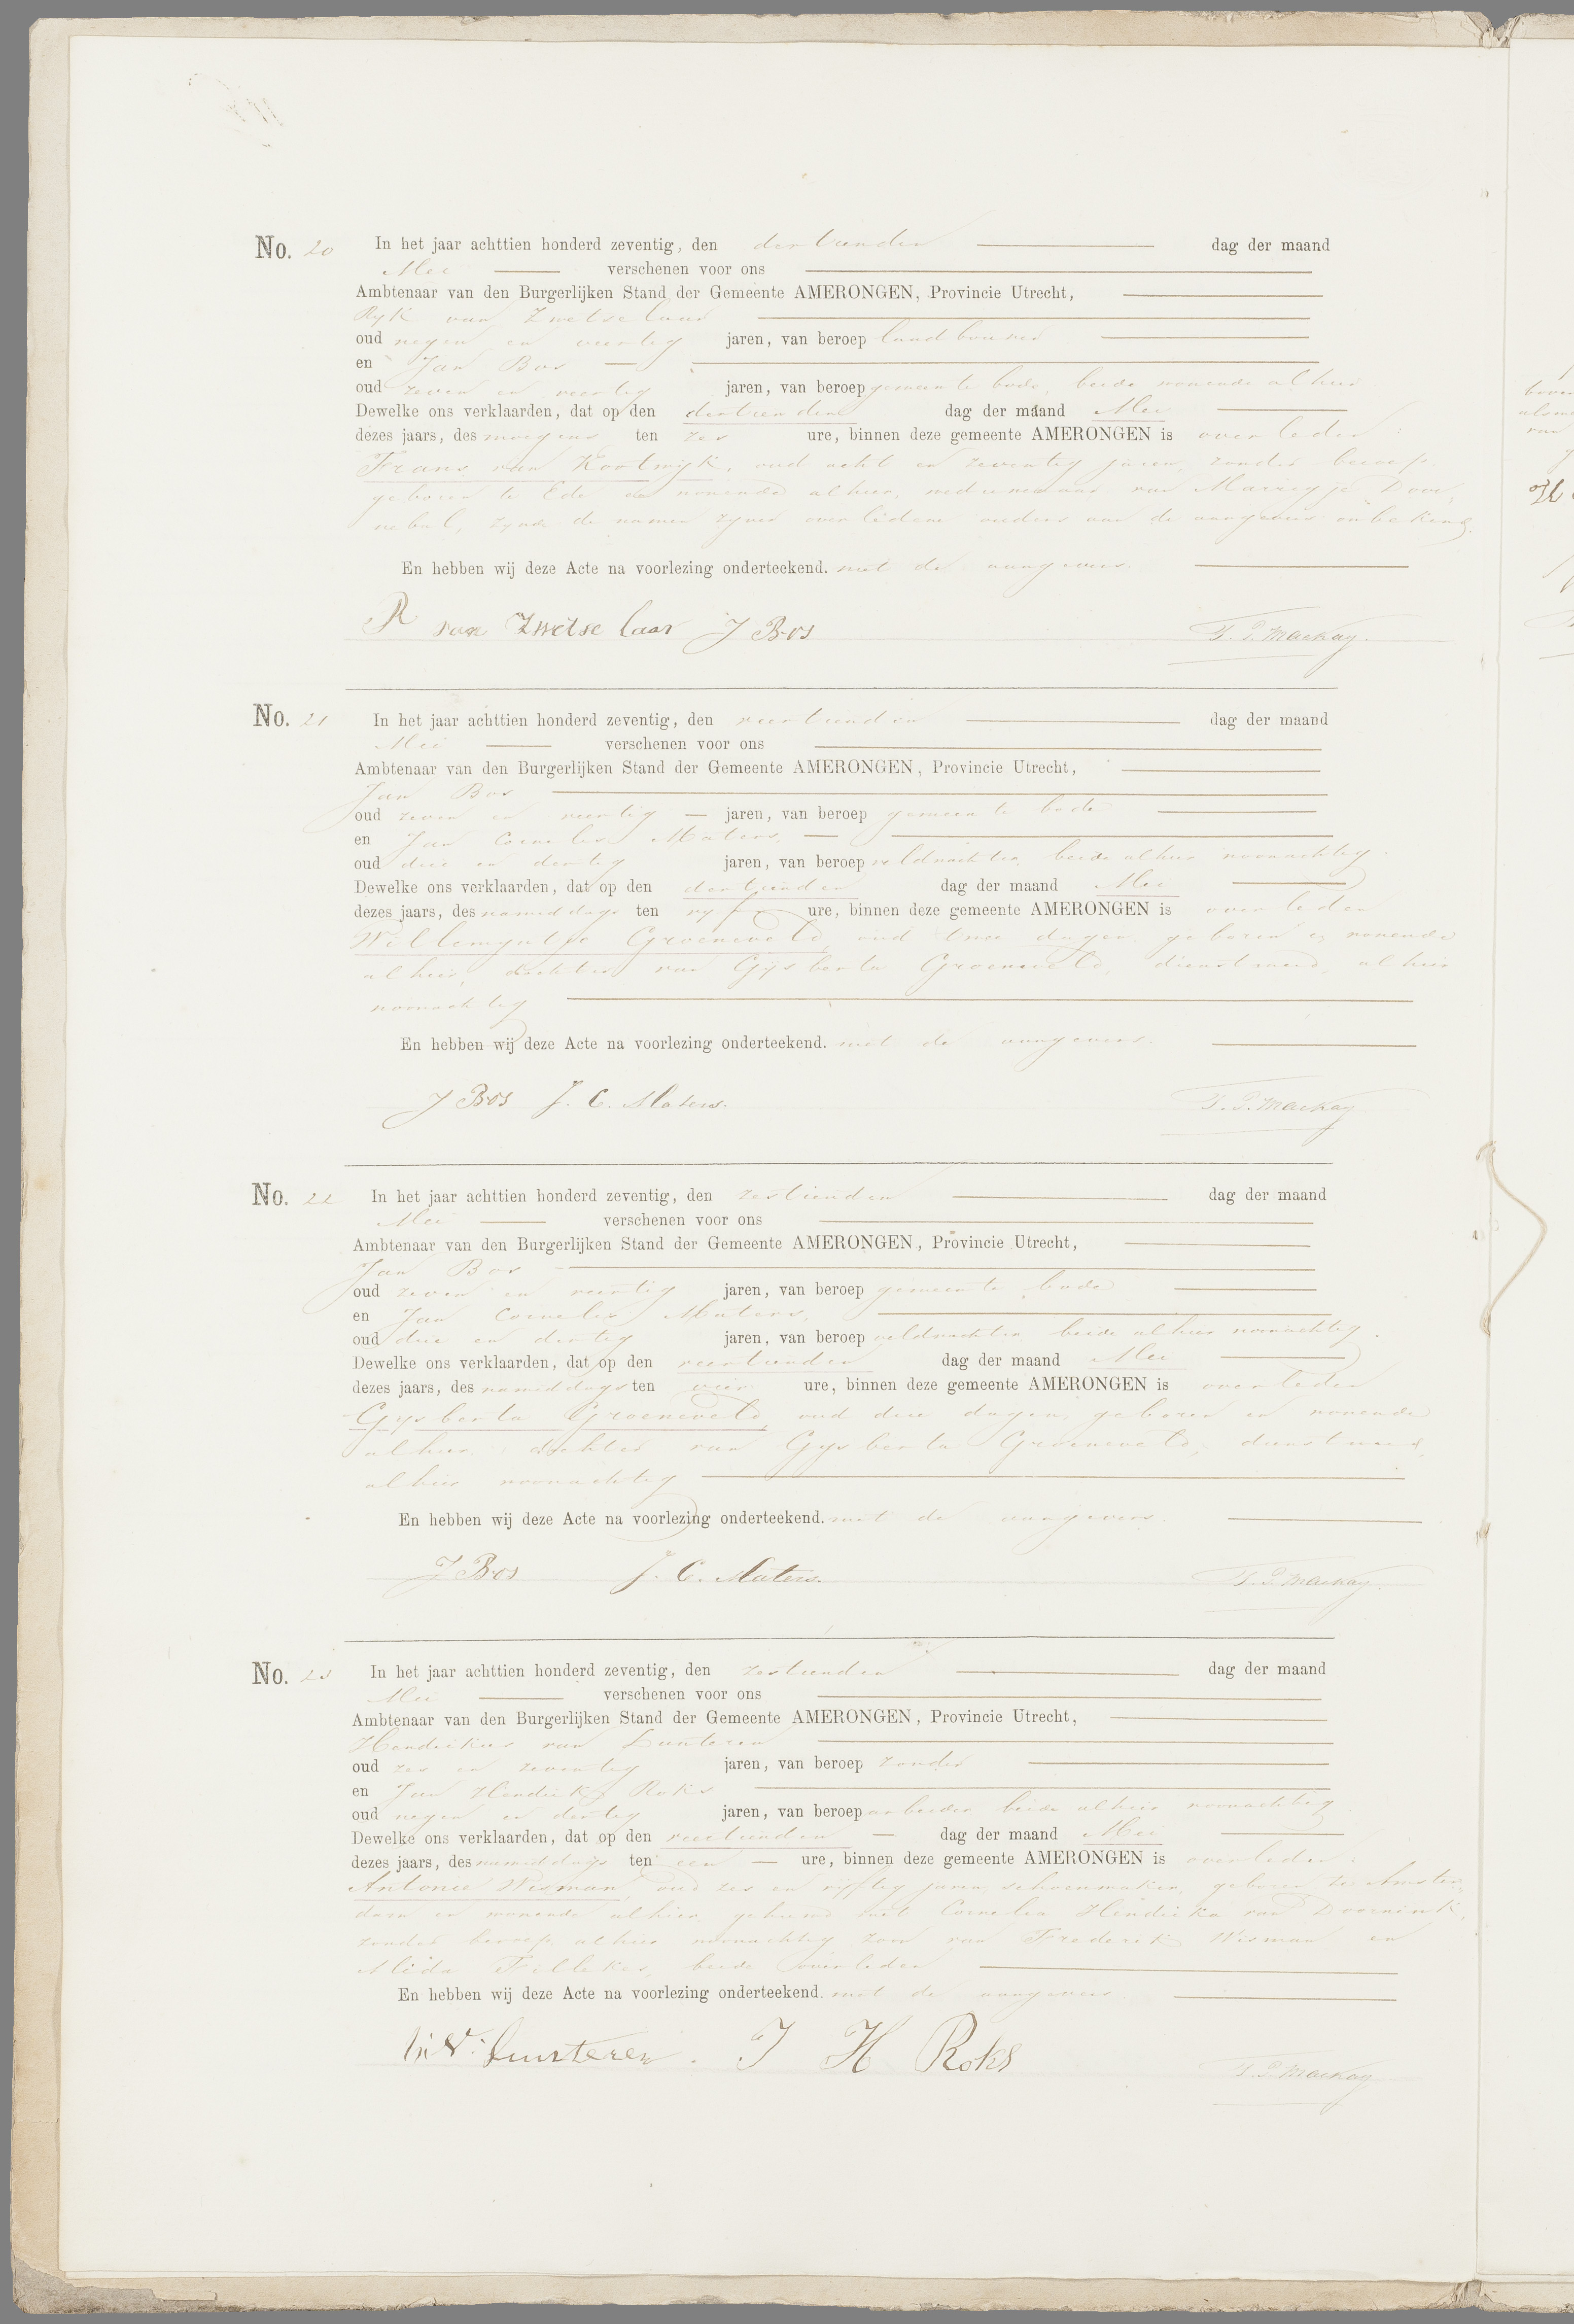 No. 20 In het jaar achttien honderd zeventig, den dertienden dag der maand
Mei verschenen voor ons
Ambtenaar van den Burgerlijken Stand der Gemeente AMERONGEN, Provincie Utrecht,
Ryk van Zwetselaar
oud negen en veertig jaren, van beroep landbouwer
en Jan Bos
oud zeven en veertig jaren, van beroep gemeente bode, beide wonende alhier
Dewelke ons verklaarden, dat op den dertienden dag der maand Mei
dezes jaars, des morgens ten zes ure, binnen deze gemeente AMERONGEN is overleden:
Frans van Kootwijk, oud acht en zeventig jaren, zonder beroep
geboren te Ede en wonende alhier, weduwenaar van Marregje Doore,
nebal, zynde de namen zyner overledene ouders aan de aangevers onbekend.
En hebben wij deze Acte na voorlezing onderteekend. met de aangevers.
R van Zwetselaar J Bos T. P. Mackay
No. 21 In het jaar achttien honderd zeventig, den veertienden dag der maand
Mei verschenen voor ons
Ambtenaar van den Burgerlijken Stand der Gemeente AMERONGEN, Provincie Utrecht,
Jan Bos
oud zeven en veertig jaren, van beroep gemeente bode
en Jan Cornelis Maters,
oud drie en dertig jaren, van beroep veldwachter, beide alhier woonachtig.
Dewelke ons verklaarden, dat op den dertienden dag der maand Mei
dezes jaars, des namiddags ten vyf ure, binnen deze gemeente AMERONGEN is overleden
Willemyntje Groeneveld, oud twee dagen, geboren en wonende
alhier, dochter van Gijsberta Groeneveld, dienstmeid, alhier
woonachtig
En hebben wij deze Acte na voorlezing onderteekend. met de aangevers.
J Bos J. C. Maters. T. P. Mackay
No. 22 In het jaar achttien honderd zeventig, den zestienden dag der maand
Mei verschenen voor ons
Ambtenaar van den Burgerlijken Stand der Gemeente AMERONGEN, Provincie Utrecht,
Jan Bos
oud zeven en veertig jaren, van beroep gemeente bode
en Jan Cornelis Maters,
oud drie en dertig jaren, van beroep veldwachter beide alhier woonachtig.
Dewelke ons verklaarden, dat op den veertienden dag der maand Mei
dezes jaars, des namiddags ten vier ure, binnen deze gemeente AMERONGEN is overleden
Gysberta Groeneveld, oud drie dagen, geboren en wonende
alhier, dochter van Gysberta Groeneveld, dienstmeid,
alhier woonachtig
En hebben wij deze Acte na voorlezing onderteekend. met de aangevers.
J Bos J. C. Maters. T. P. Mackay
No. 23 In het jaar achttien honderd zeventig, den zestienden dag der maand
Mei verschenen voor ons
Ambtenaar van den Burgerlijken Stand der Gemeente AMERONGEN, Provincie Utrecht,
Hendrikus van Lunteren
oud zes en zeventig jaren, van beroep zonder
en Jan Hendrik Roks
oud negen en dertig jaren, van beroep arbeider beide alhier woonachtig
Dewelke ons verklaarden, dat op den veertienden dag der maand Mei
dezes jaars, des namiddags ten een ure, binnen deze gemeente AMERONGEN is overleden:
Antonie Wisman, oud zes en vyftig jaren, schoenmaker, geboren te Amster,
dam en wonende alhier, gehuwd met Cornelia Hendrika van Doornink,
zonder beroep alhier woonachtig zoon van Frederik Wisman en
Alida Fellekes, beide overleden
En hebben wij deze Acte na voorlezing onderteekend. met de aangevers
H: V: Lunteren. J H Roks T. P. Mackay